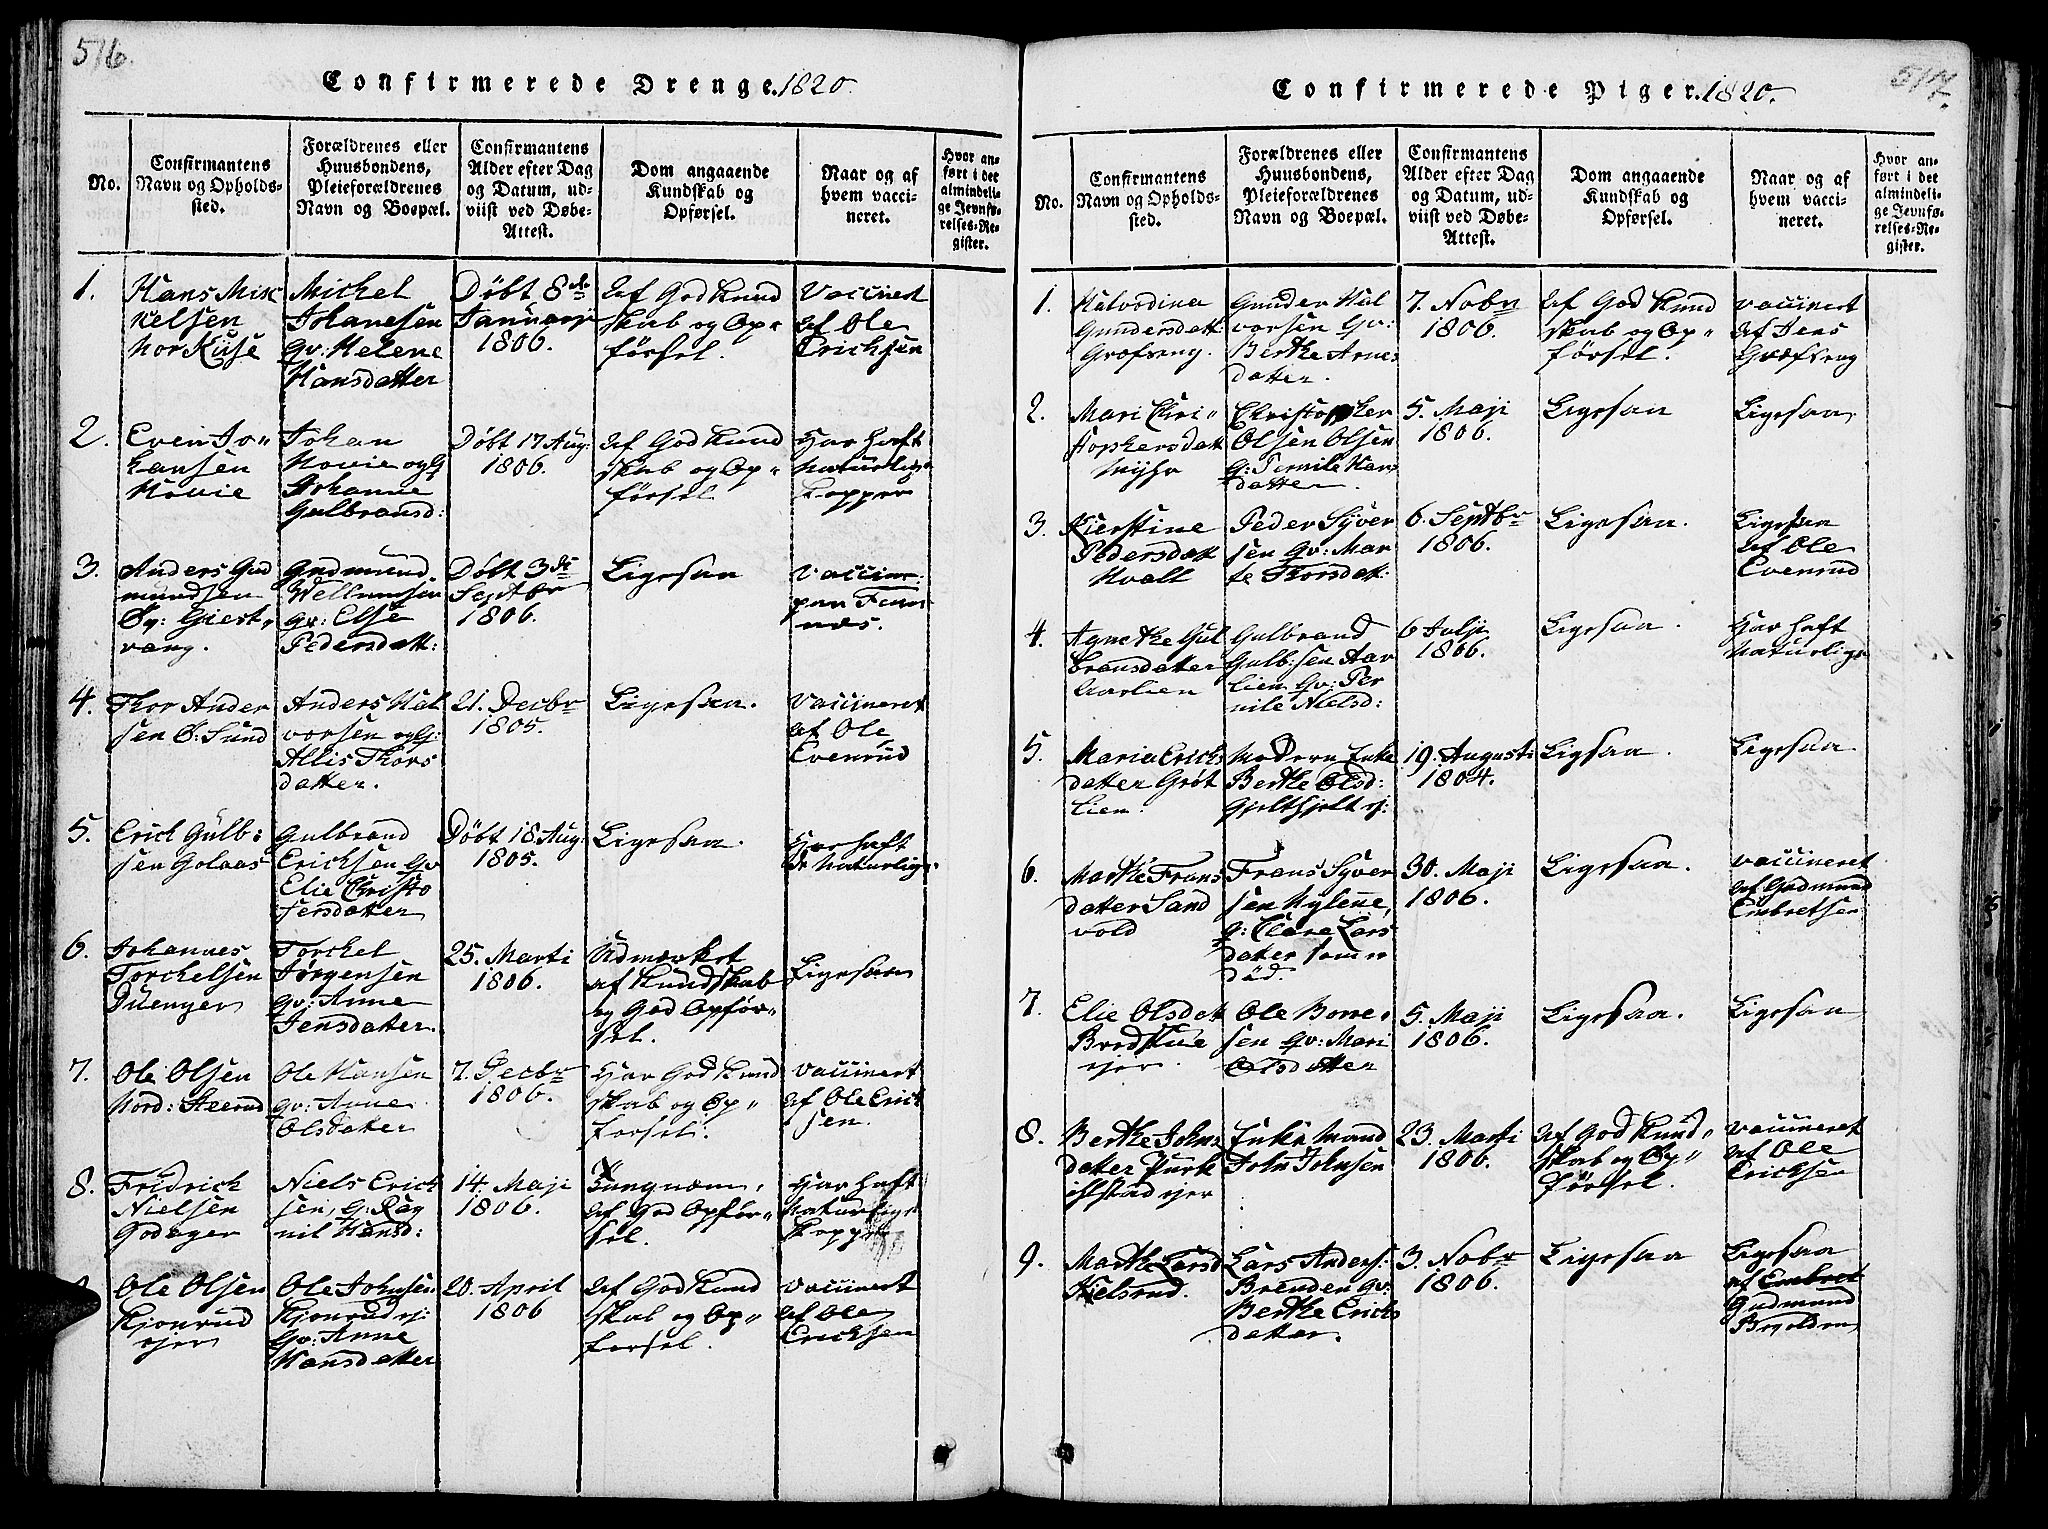 516.
Confirmerede Drenge. 1820.
No.
Confirmantens
Navn og Opholds-
sted.
Forældrenes eller
Huusbondens,
Pleieforældrenes
Navn og Boepæl.
Confirmantens
Alder efter Dag
og Datum, ud-
viist ved Døbe-
Attest.
Dom angaaende
Kundskab og
Opførsel.
Naar og af
hvem vacci-
neret.
Hvor an-
ført i det
almindeli-
ge Jevnfø-
relses-Re-
gister.
1.
Hans Mik
kelsen
Nor Kise
Michel
Johanesen
qv: Helene
Hansdatter
Døbt 8de
Januarj
1806.
af God Kund
skab og Op-
førsel.
Vaccinert
af Ole
Ericksen
2.
Even Jo-
hansen
Hovie
Johan
Hovie og G
Johanne
Gulbransd:
Døbt 17 Aug.
1806.
af God Kund
skab og Op-
førsel
Har haft
Naturlige
Kopper
3.
Anders Gud
mundsen
Gudmund
Qv: Else
Pedersdatt:
Døbt 3di
Septbr
1806.
Ligesaa
4.
Thor Ander
sen Ø: Sund
Anders Hal
vorsen og G:
Allis Thors
datter.
21. Decbr
1805.
Ligesaa.
Vaccineret
af Ole
Evenrud
5.
Erick Gulb:
sen Golaas
Gulbrand
Ericksen Gv
Elie Christo
fersdatter
Døbt 18 Aug.
1805.
Ligesaa.
Har haft
de Naturlige
6.
Johannes
Torchelsen
Duenger
Torchel
Jørgensen
qv: Anne
Jensdatter.
25. Marti
1806.
Udmærket
af Kundskab
og God Opfør-
sel.
Ligesaa
7.
Ole Olsen
Nord:
Ole Hansen
qv: Anne
Olsdatter
7. Decbr
1806.
Har God Kund
skab og Op-
førsel.
Vaccinert
af Ole Erick
sen.
8.
Fridrick
Nielsen
Godager
Niels Erick
sen, G: Rag
nil Hansd:
14. Maji
1806.
af God Opfør-
sel.
Har haft
Naturlige
Kopper
Ole Olsen
Kjonrud
ejer
Ole Johnsen
Kjonrud ej:
Gv: Anne
Hansdatter
20. April
1806
af God Kund
skab og Op-
førsel.
Vaccinert
af Ole
Ericksen
517.
Confirmerede Piger. 1820.
No.
Confirmantens
Navn og Opholds-
sted.
Forældrenes eller
Huusbondens,
Pleieforældrenes
Navn og Boepæl.
Confirmantens
Alder efter Dag
og Datum, ud-
viist ved Døbe-
Attest.
Dom angaaende
Kundskab og
Opførsel.
Naar og af
hvem vacci-
neret.
Hvor an-
ført i det
almindeli-
ge Jevnfø-
relses-Re-
gister.
1.
Halvordina
Gundersdatt:
Græfseng.
Gunder Hal
vorsen Gv:
Berthe Arnes
datter.
7. Nobr
1806.
af God Kund
skab og Op-
førsel.
vaccinert
af Jens
Græfseng
2.
Mari Chri-
stophersdatt
Christopher
Olsen Olsen
g: Pernile Han
datter.
5. Maji
1806.
Ligesaa
Ligesaa
3.
Kierstine
Pedersdatt
Hvall
Peder Syver
sen Gv: Mar
te Thorsdat:
6. Septbr
1806.
Ligesaa.
Ligesaa
af Ole
Evenrud
4.
Agnethe Gul
bransdatter
Aarlien
Gulbrand
Gulb:sen Aar
lien Gv: Per
nile Nielsd:
6 Julji
1806.
Ligesaa.
Har haft
Naturlige
5.
Maria Ericks
datter Grøt
lien.
Moderen Enke
Berthe Olsd:
19. Augusti
1804.
Ligsaa.
Ligesaa
6.
Marthe Frans
datter Sand
vold
Frans Syver
sen Nylene,
g: Clare Lars
datter som er
død.
30. Maji
1806.
Ligesaa.
vaccineret
af Gudmund
Embretsen
7.
Elie Olsdatt
ejer.
Ole Borre-
sen Gv: Mari
Olsdatter
5. Maji
1806.
Ligesaa.
Ligesaa
8.
Berthe Johns
datter
ejer
Enke Mand
John Johnsen
23. Marti
1806.
af God Kund-
skab og Op-
førsel.
vaccineret
af Ole
Ericksen
9.
Marthe Larsd
Nielsrud.
Lars Anders:
Brenden Gv:
Berthe Ericks
datter.
3. Nobr
1806.
Ligesaa
Ligesaa
af Embret
Gudmund